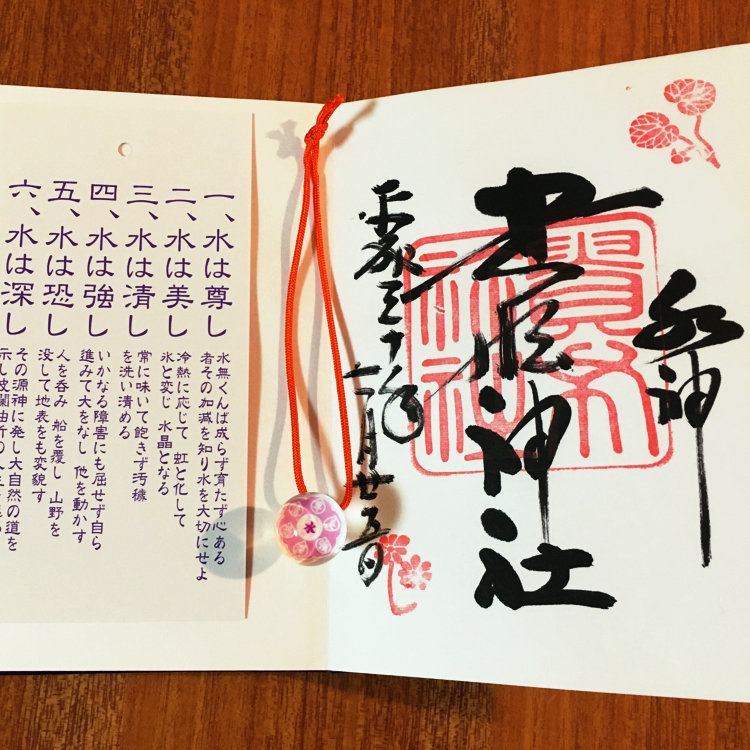 水神
貴船神社
平成三十年六月廿五日
一、水は尊し
水無くんば成らず育たず心ある
者その加減を知り水を大切にせよ
二、水は美し
冷熱に応じて 虹と化して
氷と変じ 水晶となる
三、水は清し
常に味いて飽きず汚穢
を洗い清める
四、水は強し
いかなる障害にも屈せず自ら
進みて大をなし 他を動かす
五、水は恐し
人を呑み 船を覆し 山野を
没して地表をも変貌す
六、水は深し
その源神に発し大自然の道を
示し波瀾曲折の人生